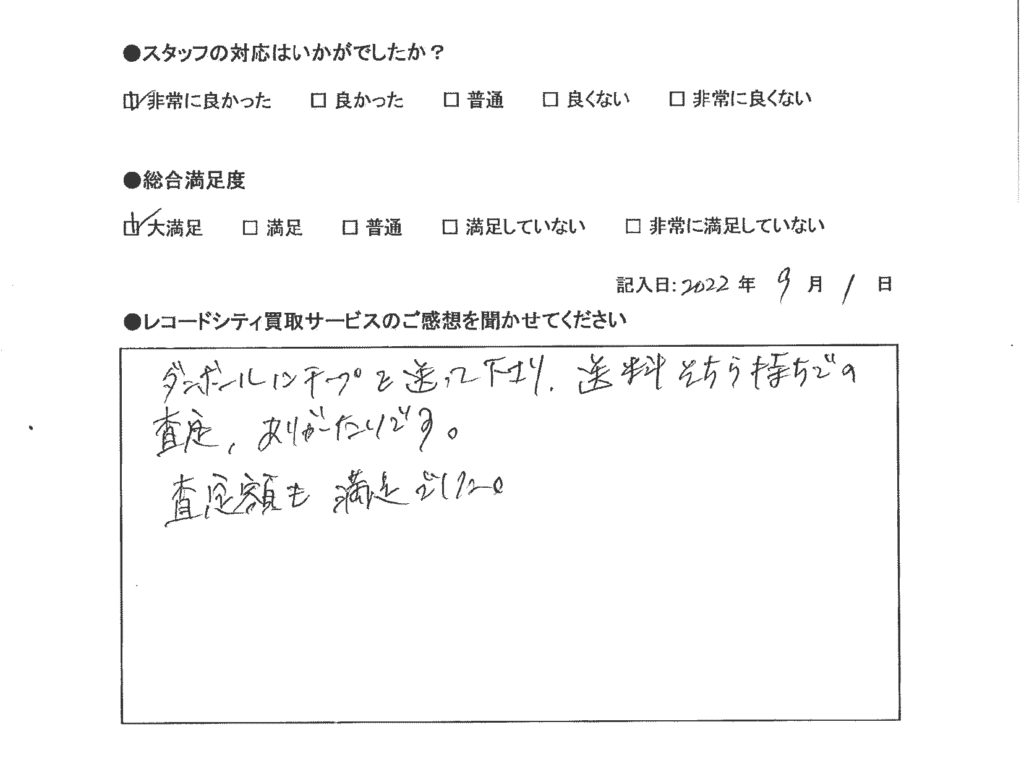 ●スタッフの対応はいかがでしたか？
☑非常に良かった □ 良かった □ 普通 □ 良くない □ 非常に良くない
●総合満足度
☑大満足 □ 満足 □ 普通 □ 満足していない □ 非常に満足していない
記入日:2022 年 9 月 1 日
●レコードシティ買取サービスのご感想を聞かせてください
ダンボールにテープを送って下さり、送料そちら持ちでの
査定、ありがたいです。
査定額も満足でした。